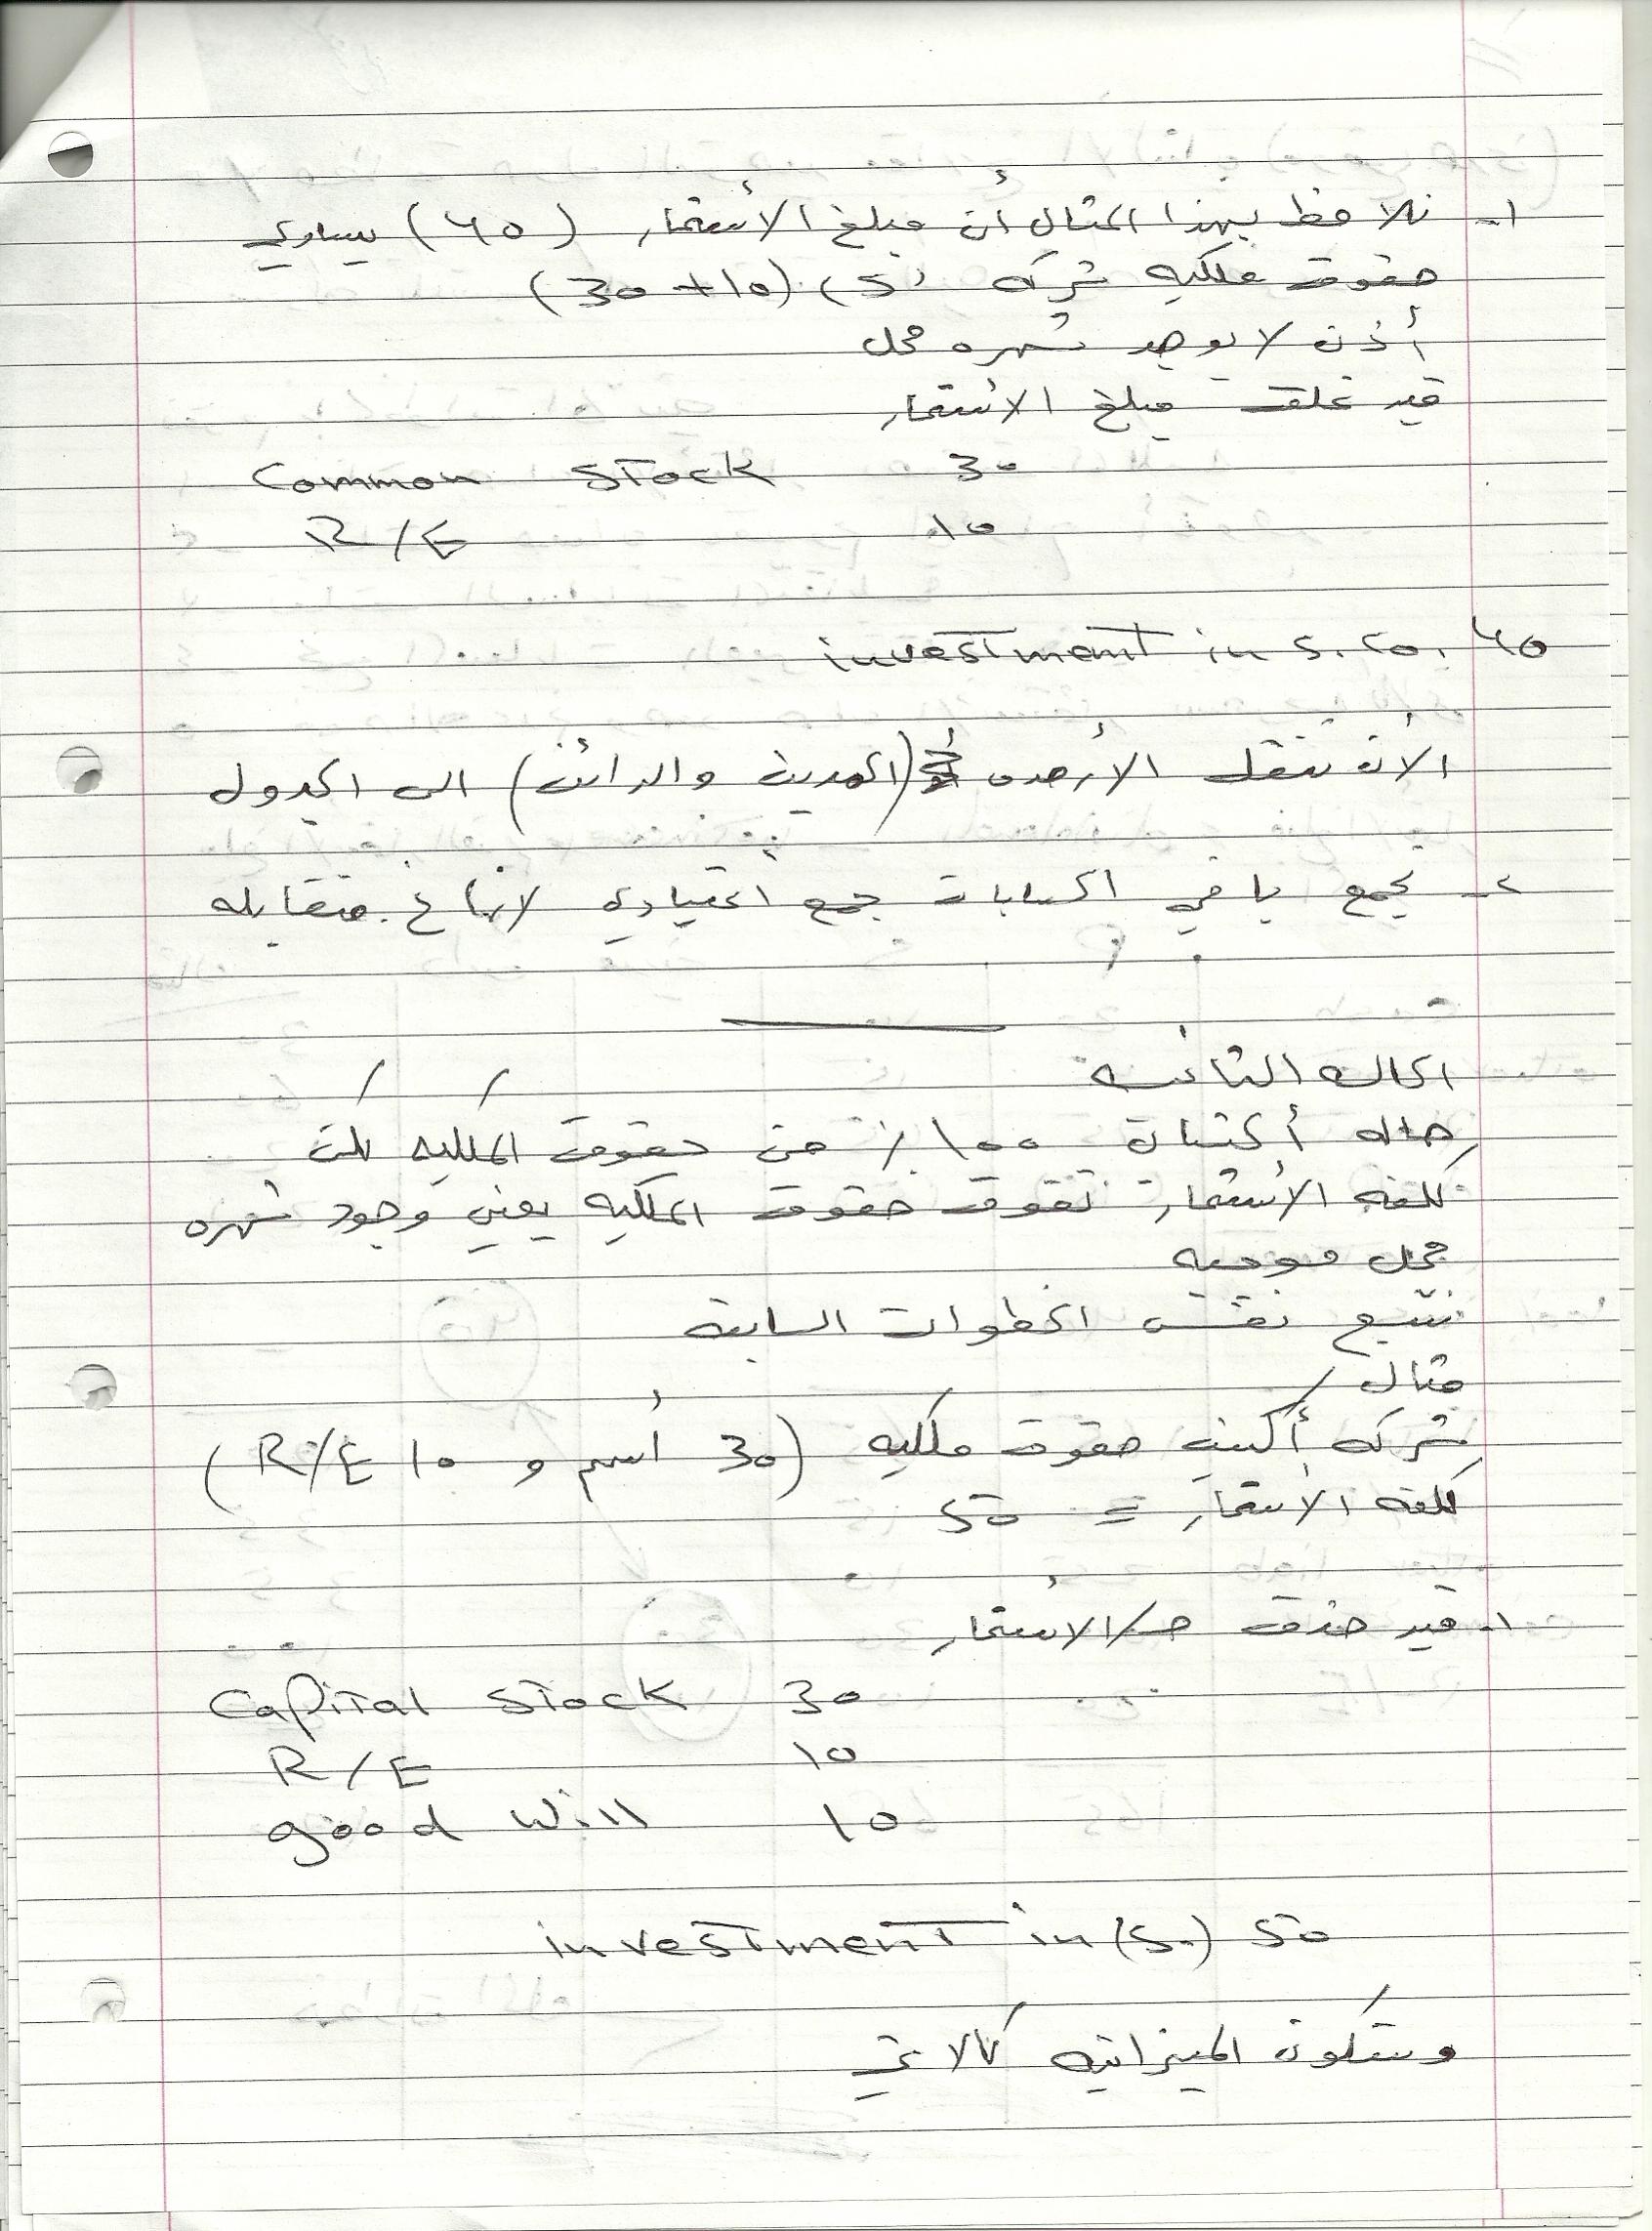 ١- نلاحظ بهذا المثال أن مبلغ الأستثمار (40) يساوي
حقوق ملكيه شركه (S) (30+10)
أذن لا يوجد شهره محل
قيد غلق مبلغ الاستثمار
Common Stock 30
R/E 10
investment in S. Co. 40
الأن ننقل الأرصده (المدين والدائن) الى الجدول
٢- نجمع باقي الحسابات جمع أعتيادي لانها غ. متقابله
الحاله الثانيه
حاله أكتساب 100٪ من حقوق الملكيه لكن
كلفه الأستثمار تفوق حقوق الملكيه يعني وجود شهره
محل موجبه
نتبع نفس الخطوات السابقه
مثال /
شركه أكتسبت حقوق ملكيه (30 أسهم و 10 R/E)
كلفه الأستثمار = 50
١- قيد حذف حـ/الأستثمار
Capital Stock 30
R/E 10
good Will 10
investment in (S.) 50
وستكون الميزانيه كالاتي